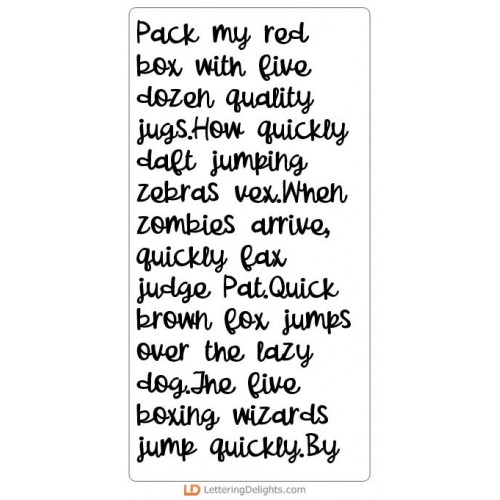 Pack my red
box with five
dozen quality
jugs.How quickly
daft jumping
zebras vex.When
zombies arrive,
quickly fax
judge Pat.Quick
brown fox jumps
over the lazy
dog.The five
boxing wizards
jump quickly.By
LD LetteringDelights.com